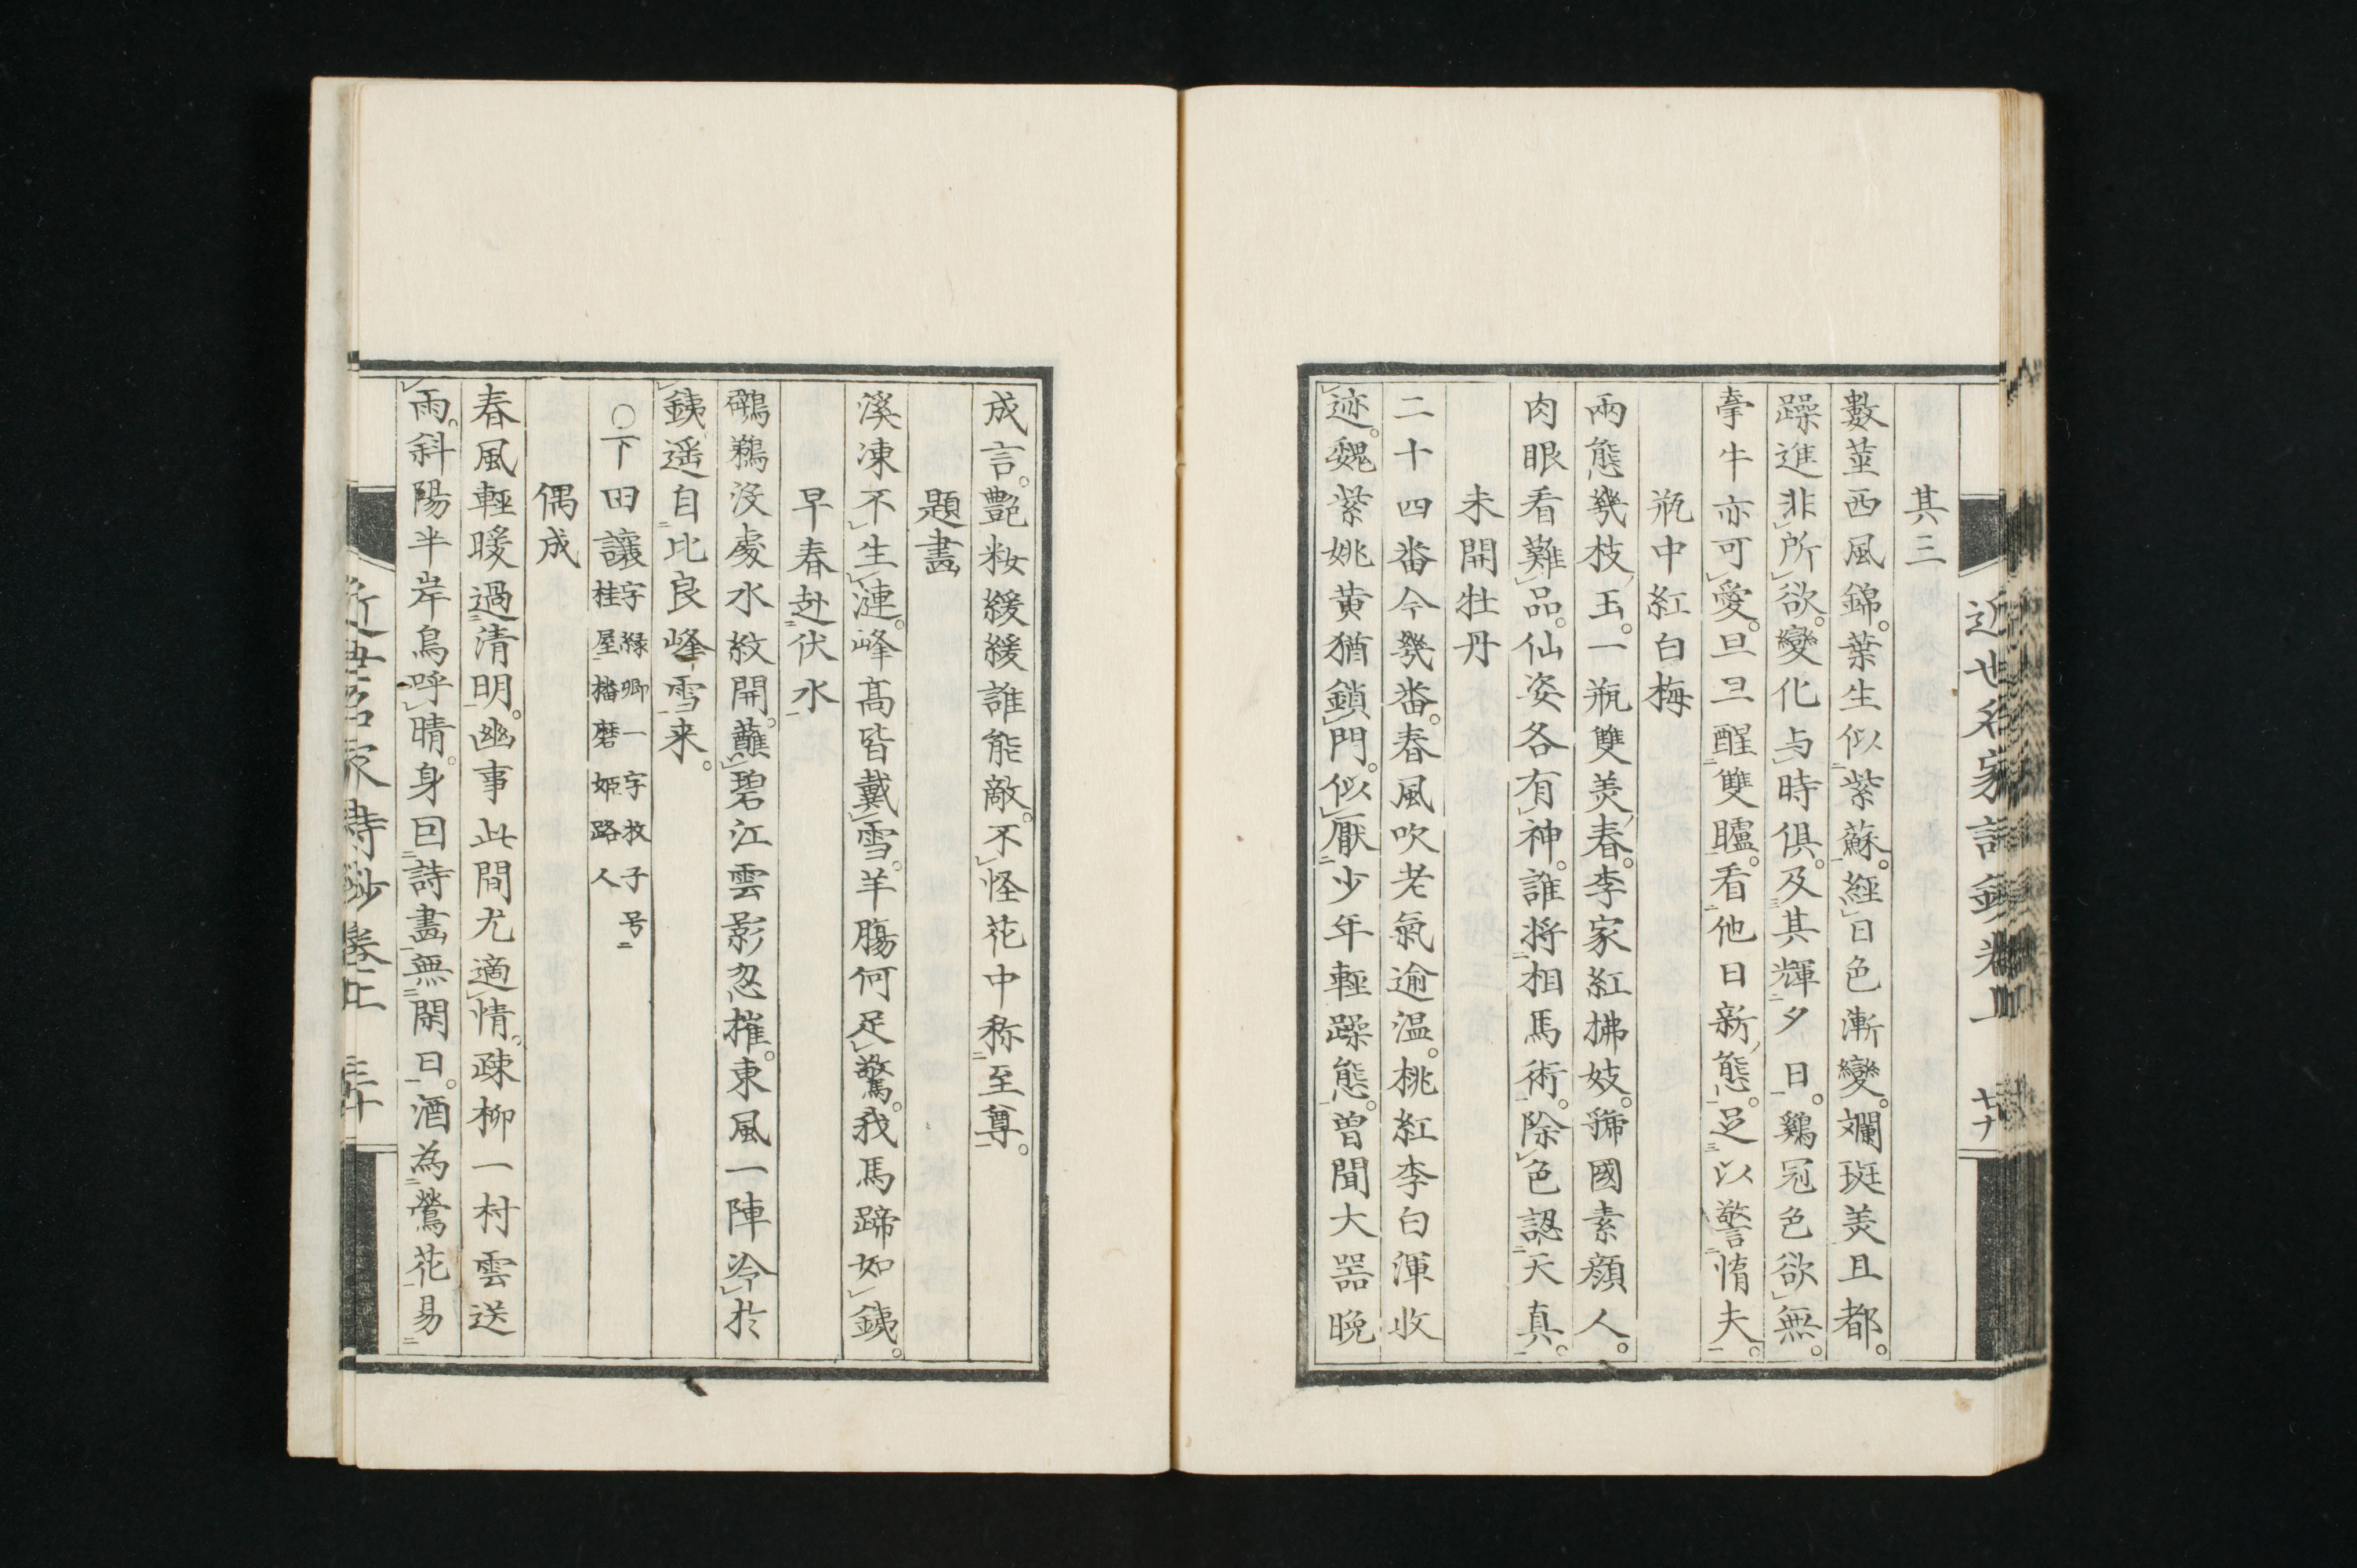 近世名家詩鈔卷上
其三
數莖西風錦。葉生似紫蘇。經日色漸變。斕斑美且都。
躁進非所欲。變化与時俱。及其輝夕日。鷄冠色欲無。
牽牛亦可愛。旦旦醒雙矑。看他日新態。足以警惰夫。
瓶中紅白梅
兩態幾枝玉。一瓶雙美春。李家紅拂妓。虢國素顏人。
肉眼看難品。仙姿各有神。誰將相馬術。除色認天真。
未開牡丹
二十四番今幾番。春風吹老氣逾温。桃紅李白渾收
迹。魏紫姚黄猶鎖門。似厭少年輕躁態。曽聞大器晚
成言。豔粧緩緩誰能敵。不怪花中称至尊。
題畫
溪凍不生漣。峰髙皆戴雪。羊膓何足驚。我馬蹄如鐵。
早春赴伏水
鸂鶒没處水紋開。蘸碧江雲影忽摧。東風一陣冷於
鐵。遥自比良峰雪来。
○下田讓字緑卿一字牧子号
桂屋播磨姫路人
偶成
春風輕暖過清明。幽事此間尤適情。疎柳一村雲送
雨。斜陽半岸鳥呼晴。身回詩畫無閑日。酒為鶯花易
近世名家詩鈔卷上